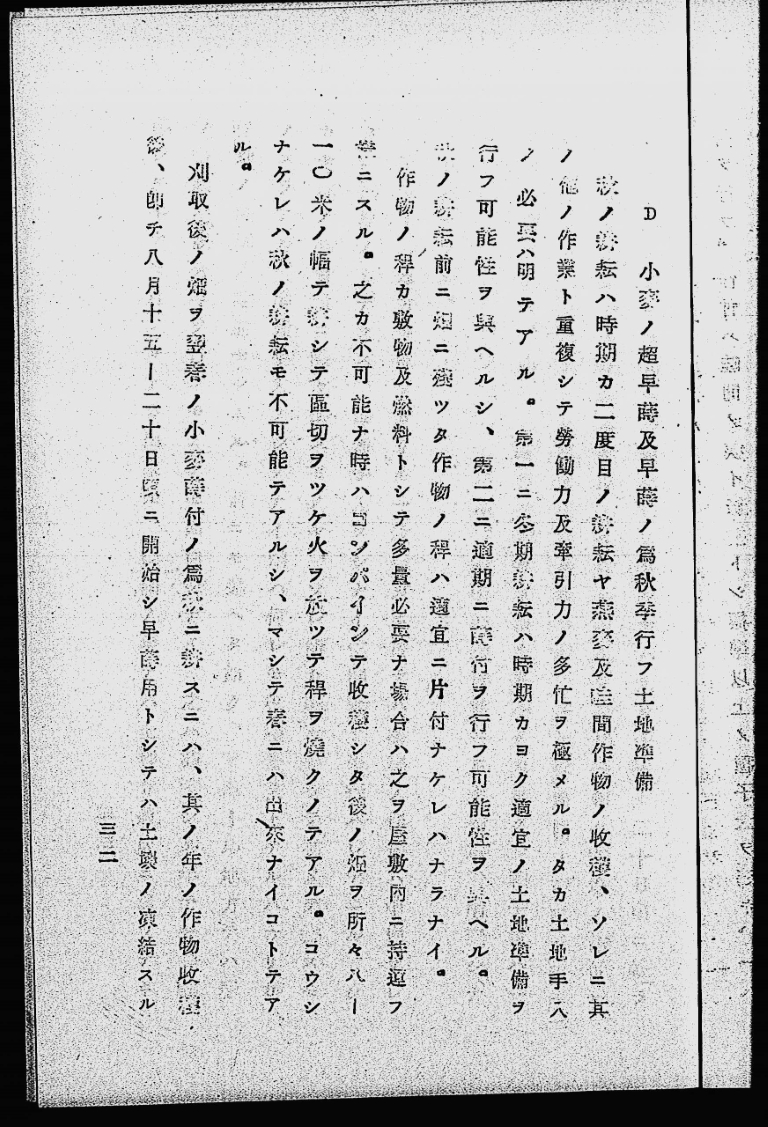 D 小麥ノ超早蒔及早蒔ノ爲秋季行フ土地準備
秋ノ耕耘ハ時期カ二度目ノ耕耘ヤ燕麥及畦間作物ノ收穫、ソレニ其
ノ他ノ作業ト重複シテ勞働力及牽引力ノ多忙ヲ極メル。タカ土地手入
ノ必要ハ明テアル。第一ニ冬期耕耘ハ時期カヨク適宜ノ土地準備ヲ
行フ可能性ヲ與ヘルシ、第二ニ適期ニ蒔付ヲ行フ可能性ヲ與ヘル。
秋ノ耕耘前ニ畑ニ殘ツタ作物ノ稈ハ適宜ニ片付ナケレハナラナイ。
作物ノ稈カ敷物及燃料トシテ多量必要ナ場合ハ之ヲ屋敷内ニ持運フ
樣ニスル。之カ不可能ナ時ハコンバインテ收穫シタ後ノ畑ヲ所々八ー
一〇米ノ幅テ耕シテ區切ヲツケ火ヲ放ツテ稈ヲ燒クノテアル。コウシ
ナケレハ秋ノ耕耘モ不可能テアルシ、マシテ春ニハ出來ナイコトテア
ル。
刈取後ノ畑ヲ翌春ノ小麥蒔付ノ爲秋ニ耕スニハ、其ノ年ノ作物收穫
後、卽チ八月十五ー二十日頃ニ開始シ早蒔用トシテハ土壤ノ凍結スル
三二